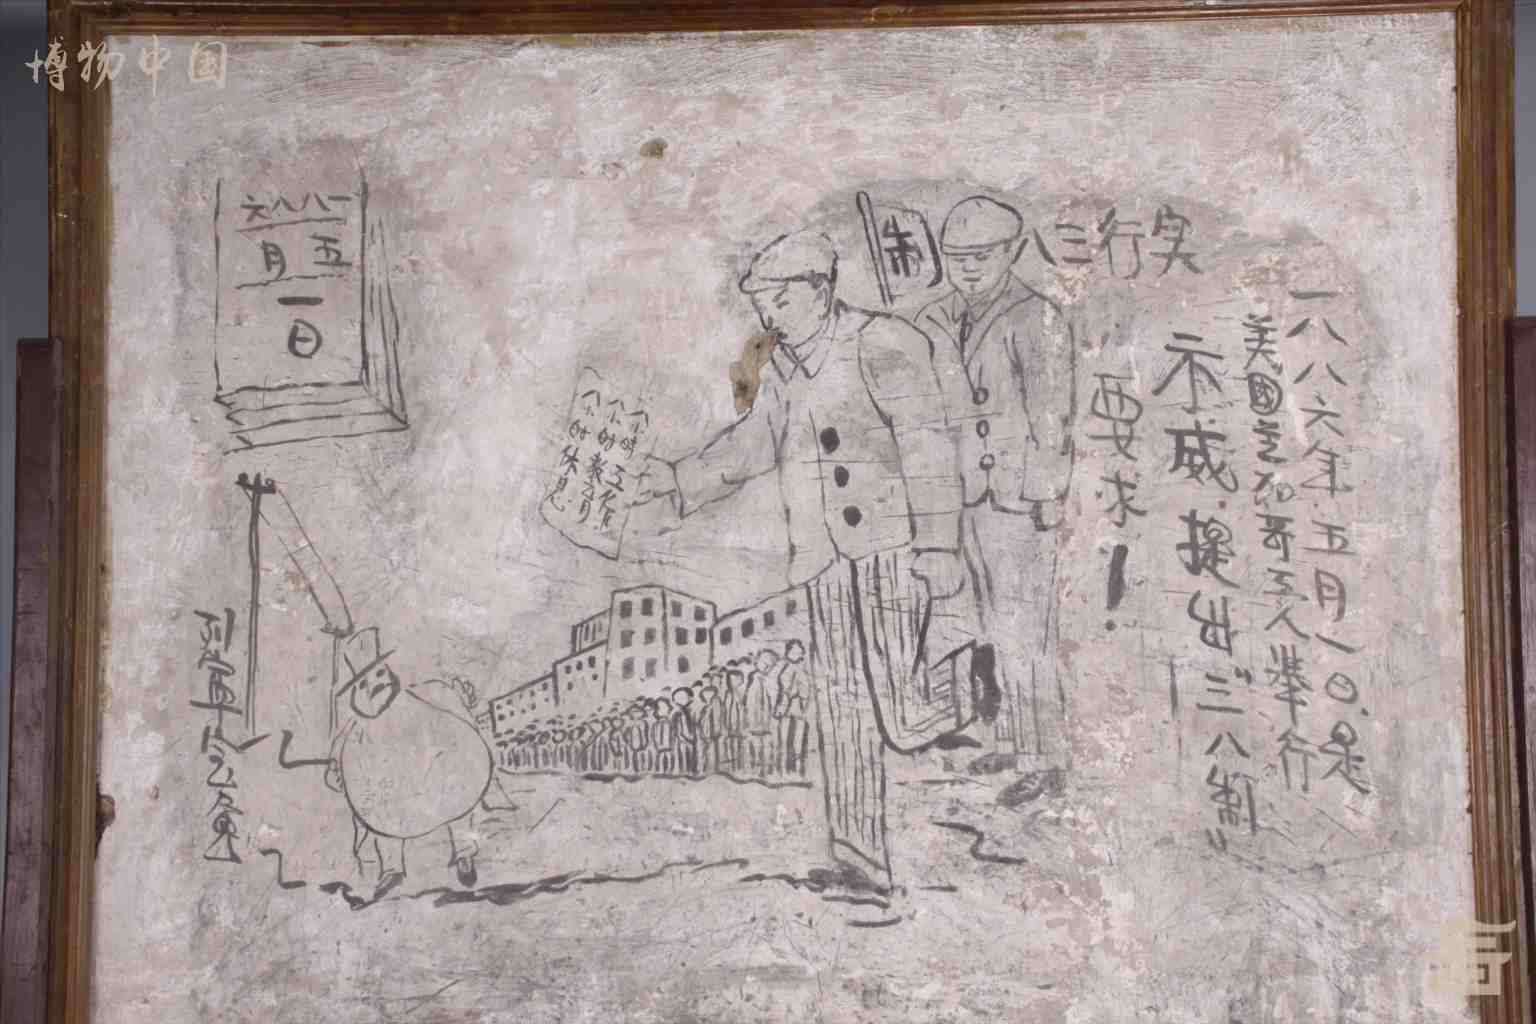 博物中国
一八八六
五月
一日
实行三八制
一八八六年五月一日是
美國芝加哥工人举行
示威·提出“三八制”
要求！
八小時工作
八小时教育
八小时休息